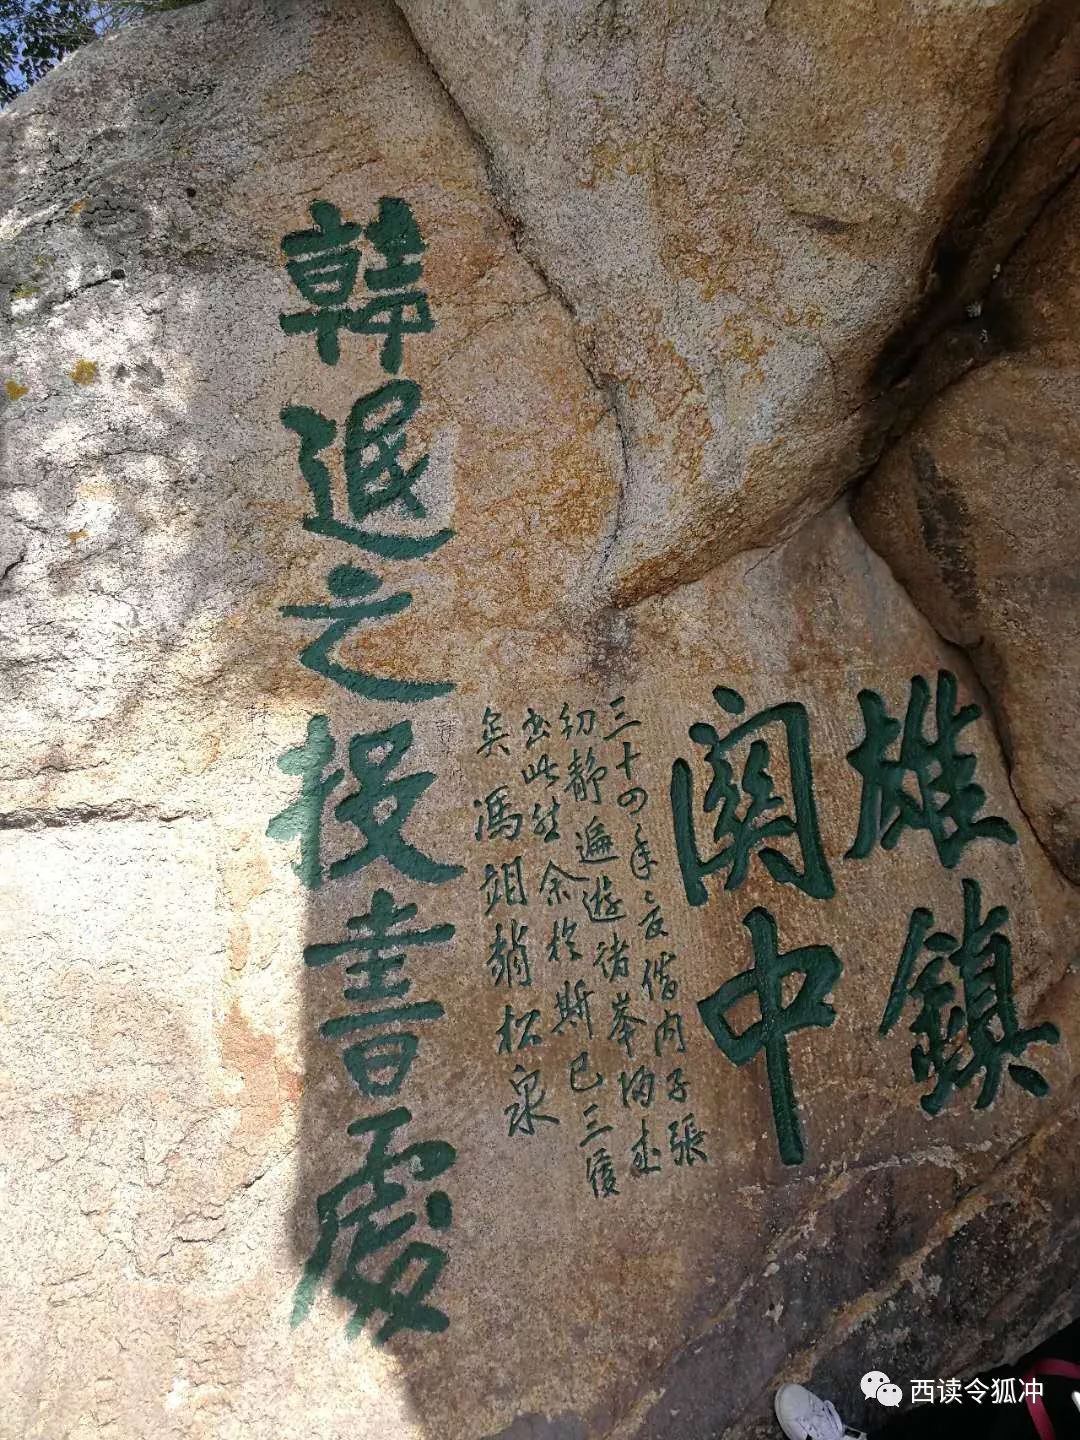 雄鎮
闗中
三十四年夏偕内子張
幼靜遍遊諸峯
書此然余於斯已三
矣馮翊趙松泉
韓退之投書處
西读令狐冲